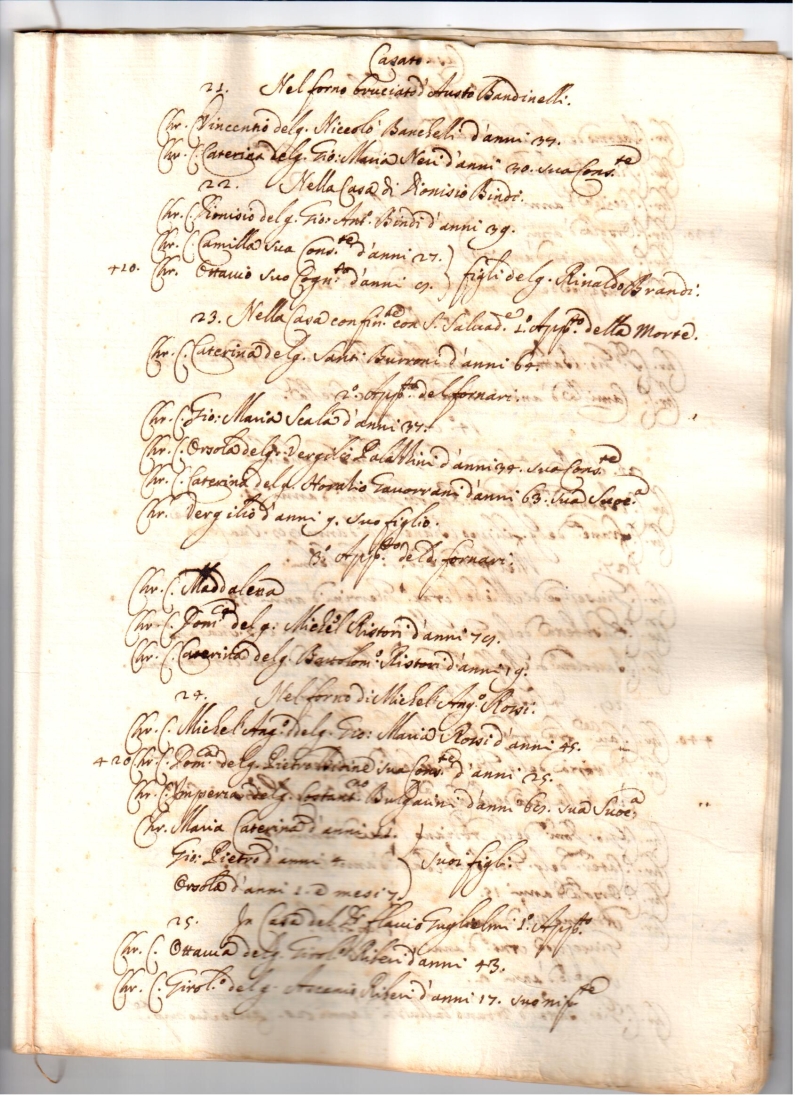 Casato
21. Nel forno bruciato d'Austo Bandinelli.
Chr. C. Vincentio del q. Niccolò Banchelli d'anni 37.
Chr. C. Caterina del q. Gio: Maria Neri d'anni 30. sua Cons.te
22. Nella Casa di Dionisio Bindi.
Chr. C. Dionisio del q. Gio: Ant.o Bindi d'anni 39.
Chr. C. Camilla sua Cons.te d'anni 27. } figli del q. Rinaldo Brandi.
+10. Chr. Ottavio suo Cogn.to d'anni 9.
23. Nella Casa confin.te con S. Salvad.e 1.o App.to della Morte.
Chr. C. Caterina del q. Santi Burroni d'anni
2.o App.to del fornari.
Chr. C. Gio: Maria Scala d'anni 37.
Chr. C. Orsola del q. Vergilio d'anni 34. sua Cons.te
Chr. C. Caterina del q. Horatio Gavorrani d'anni 63. sua Suoc.a
Chr. Vergilio d'anni 9. suo figlio.
3.o App.to del fornari.
Chr. C. Maddalena
Chr. C. Dom.ca del q. Michel Ristori d'anni 79.
Chr. C. Caterina del q. Bartolom.o Ristori d'anni 19.
24. Nel forno di Michel Ang.o Rossi.
Chr. C. Michel Ang.o del q. Gio: Maria Rossi d'anni 45.
+20 Chr. C. Dom.ca del q. Pietro sua Cons.te d'anni 25.
Chr. C. Imperia del q. Costant.no Bulgarini d'anni sua Suoc.a
Chr. Maria Caterina d'anni } suoi figli.
Gio: Pietro d'anni 4.
Orsola d'anni 1. e mesi 7
25. In Casa del Flavio Guglielmi 1.o App.to
Chr. C. Ottavia del q. Girol.o d'anni 43.
Chr. C. Girol.o del q. Ascanio d'anni 17. suo nip.te